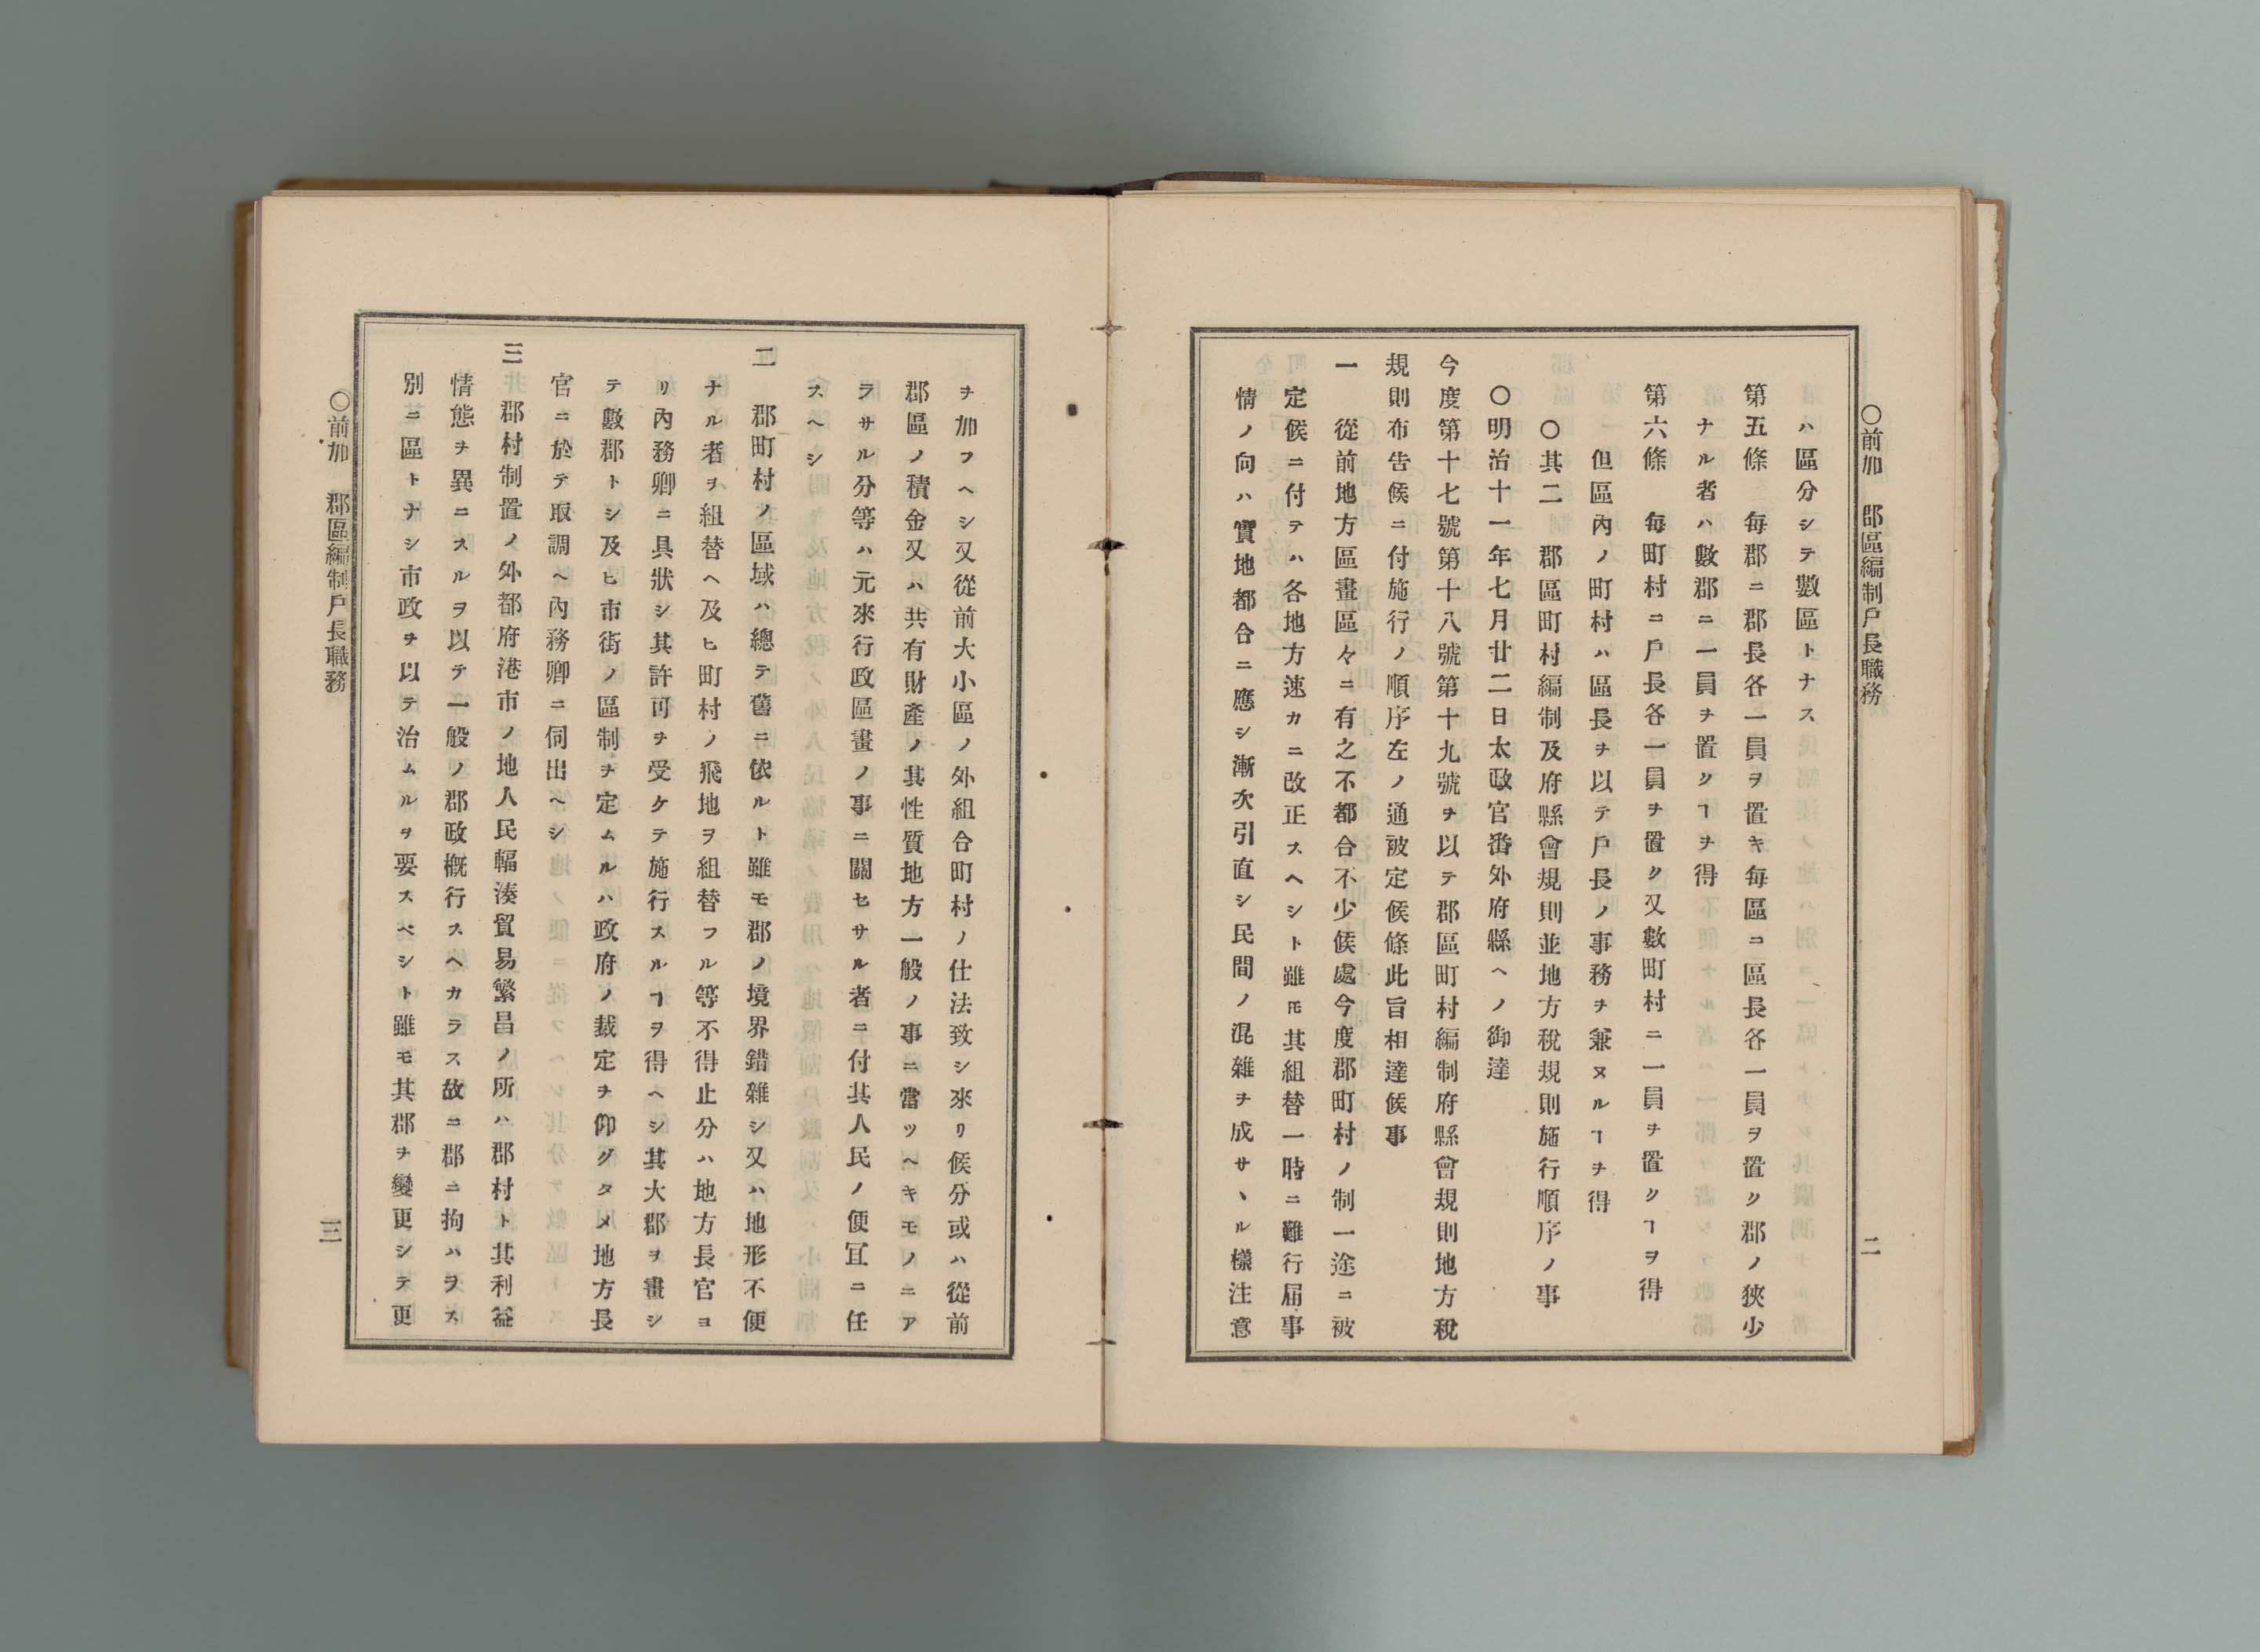 〇前加　郡區編制戶長職務
二
ハ區分シテ數區トナス
第五條　每郡ニ郡長各一員ヲ置キ每區ニ區長各一員ヲ置ク郡ノ狹少
ナル者ハ數郡ニ一員ヲ置クヿヲ得
第六條　每町村ニ戶長各一員ヲ置ク又數町村ニ一員ヲ置クヿヲ得
但區內ノ町村ハ區長ヲ以テ戶長ノ事務ヲ兼ヌルヿヲ得
〇其二　郡區町村編制及府縣會規則並地方稅規則施行順序ノ事
〇明治十一年七月廿二日太政官番外府縣ヘノ御達
今度第十七號第十八號第十九號ヲ以テ郡區町村編制府縣會規則地方稅
規則布告候ニ付施行ノ順序左ノ通被定候條此旨相達候事
一　從前地方區畫區々ニ有之不都合不少候處今度郡町村ノ制一途ニ被
定候ニ付テハ各地方速カニ改正スヘシト雖𪜈其組替一時ニ難行屆事
情ノ向ハ實地都合ニ應シ漸次引直シ民間ノ混雜ヲ成サヽル樣注意
ヲ加フヘシ又從前大小區ノ外組合町村ノ仕法致シ來リ候分或ハ從前
郡區ノ積金又ハ共有財產ノ其性質地方一般ノ事ニ當ツヘキモノニア
ラサル分等ハ元來行政區畫ノ事ニ關セサル者ニ付其人民ノ便冝ニ任
スヘシ
二　郡町村ノ區域ハ總テ舊ニ依ルト雖モ郡ノ境界錯雜シ又ハ地形不便
ナル者ヲ組替ヘ及ヒ町村ノ飛地ヲ組替フル等不得止分ハ地方長官ヨ
リ內務卿ニ具狀シ其許可ヲ受ケテ施行スルヿヲ得ヘシ其大郡ヲ畫シ
テ數郡トシ及ヒ市街ノ區制ヲ定ムルハ政府ノ裁定ヲ仰グタメ地方長
官ニ於テ取調ヘ內務卿ニ伺出ヘシ
三　郡村制置ノ外都府港市ノ地人民輻湊貿易繁昌ノ所ハ郡村ト其利益
情態ヲ異ニスルヲ以テ一般ノ郡政槪行スヘカラス故ニ郡ニ拘ハラス
別ニ區トナシ市政ヲ以テ治ムルヲ要スベシト雖モ其郡ヲ變更シテ更
〇前加　郡區編制戶長職務
三